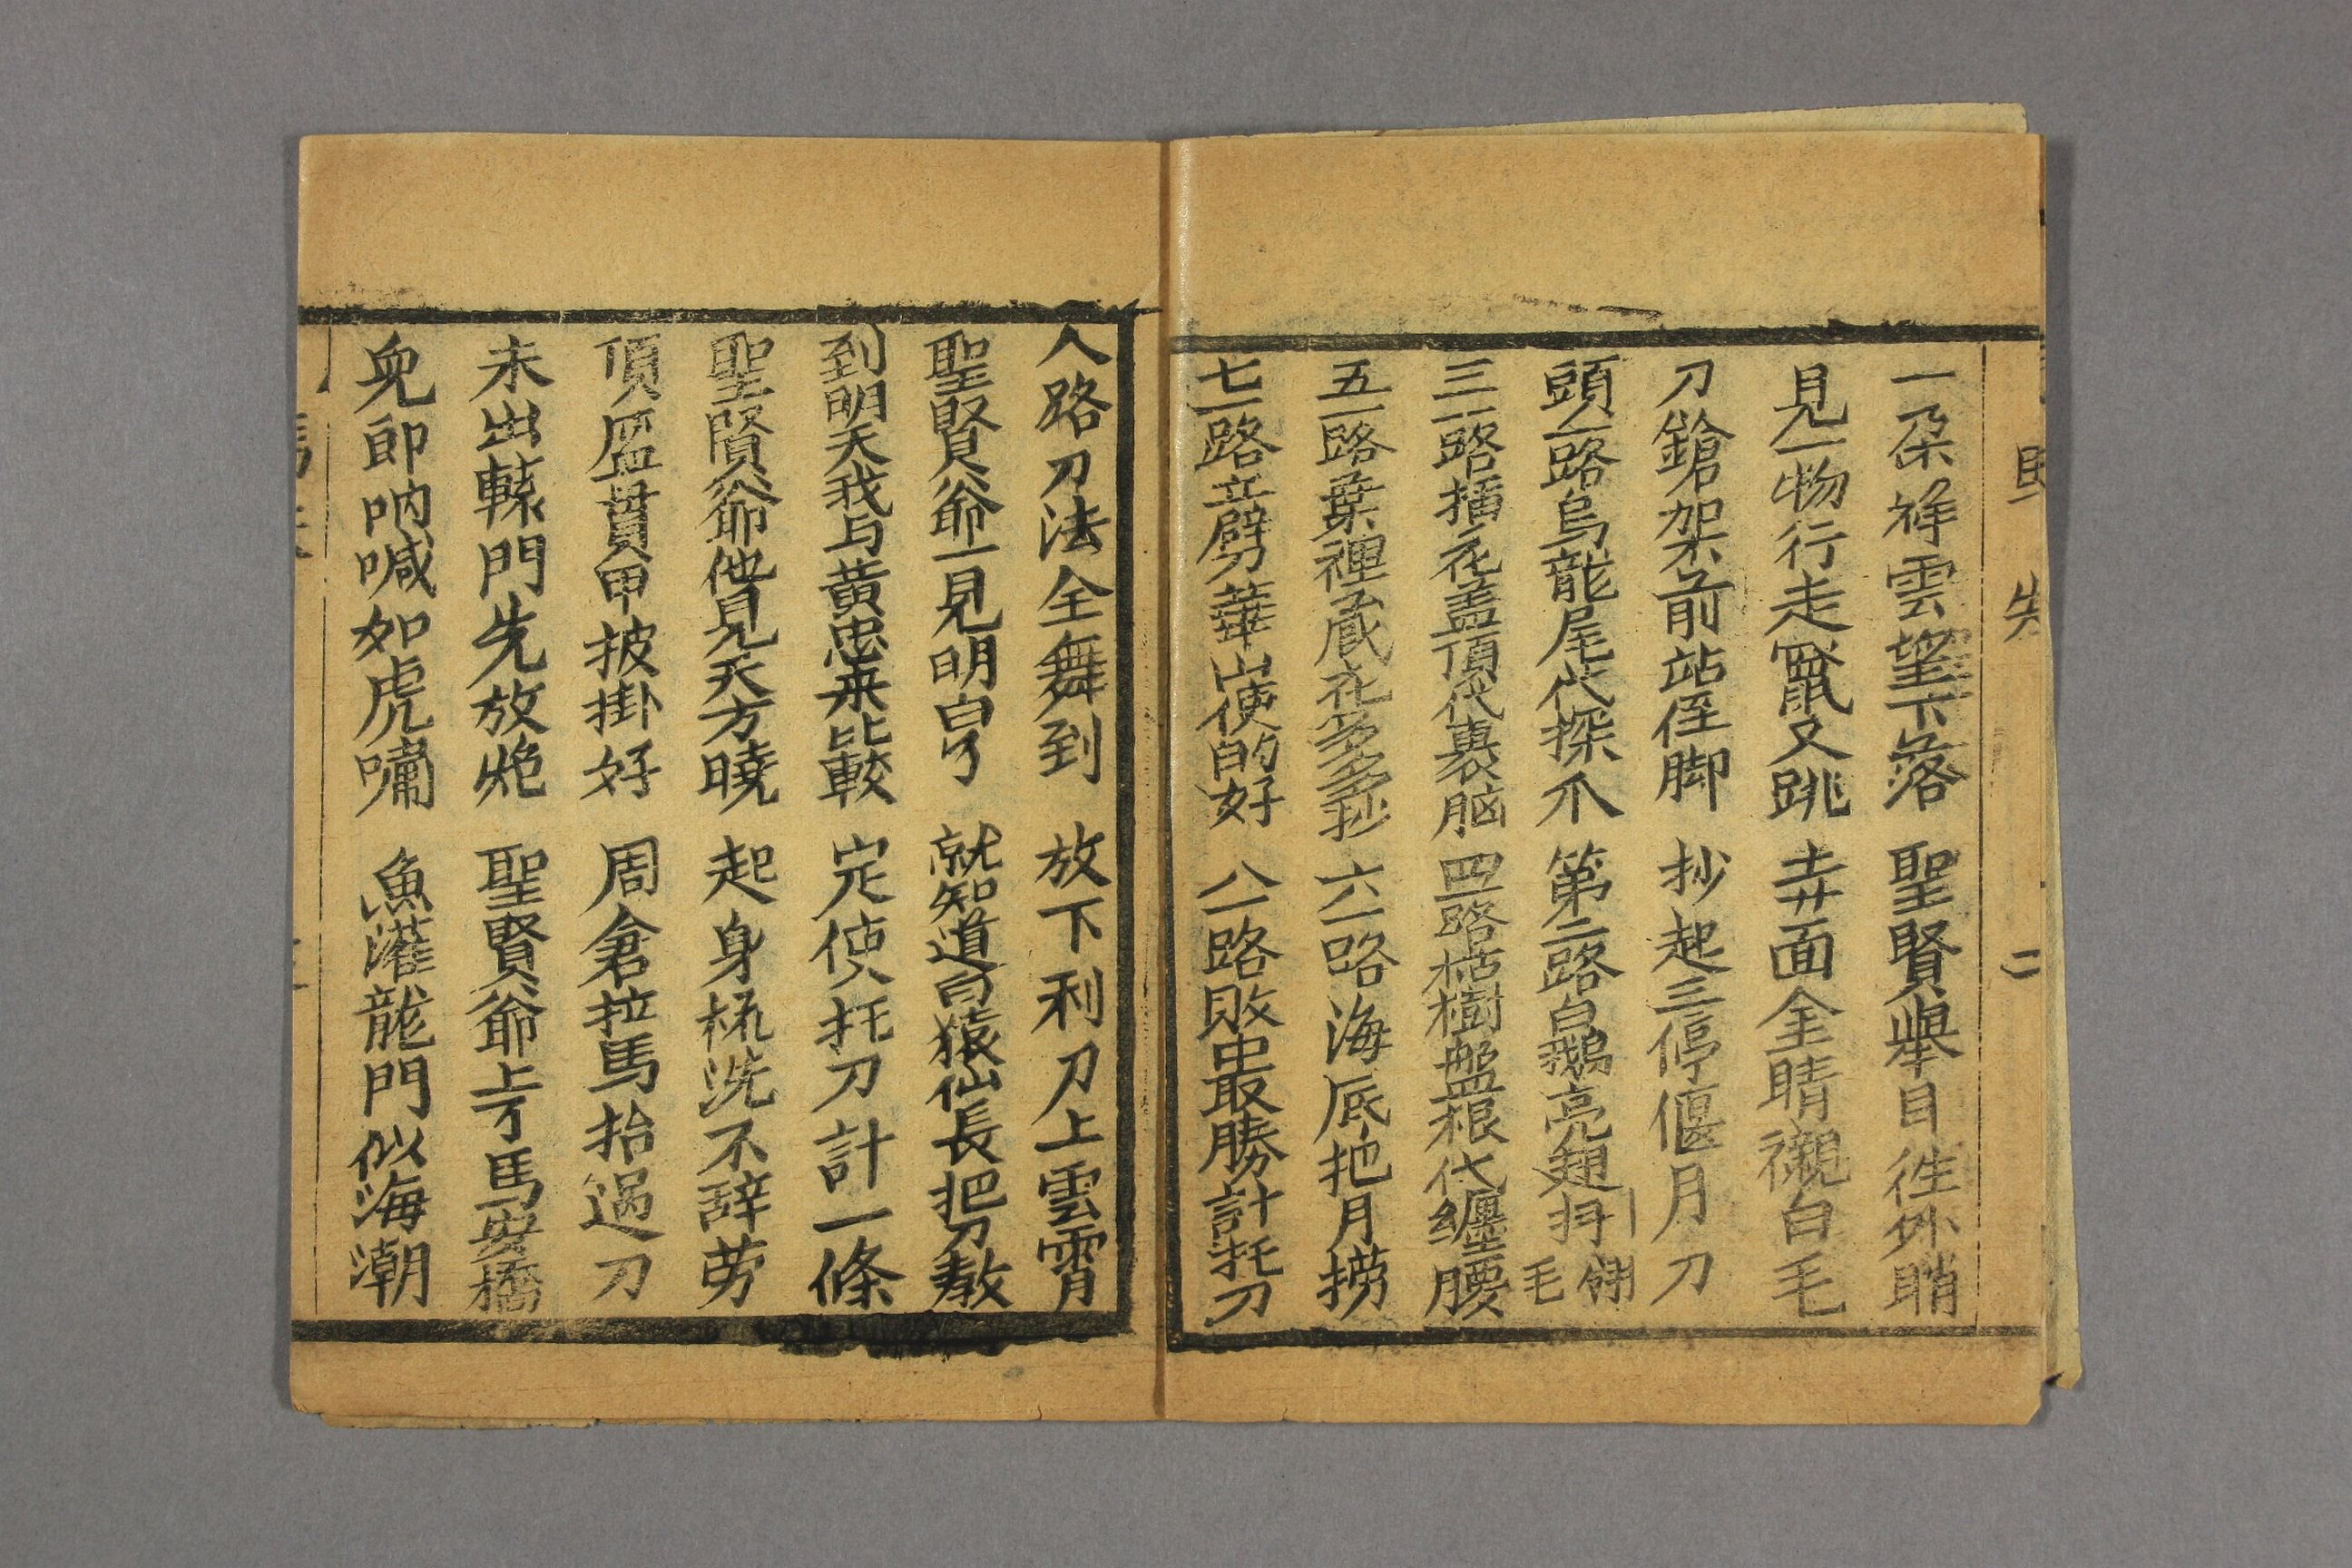 一朶祥雲望下落　聖賢舉目徃外睄
見一物行走躥又跳　弄面金睛襯白毛
刀鎗架前站侄脚　抄起三停偃月刀
頭一路烏龍尾代探爪　第二路白鵝亮翅抖翎毛
三一路插花盖頂代裹脳　四一路枯樹盤根代纏腰
五一路葉裡藏花多多抄　六一路海底把月撈
七一路立劈華山使的好　八一路敗中最勝計托刀
八路刀法全舞到　放下利刀上雲霄
聖賢爺一見明白了　就知道白猿仙長把刀教
到明天我与黃忠来比較　定使托刀計一條
聖賢爺他見天方曉　起身梳洗不辞劳
頂盔貫甲披掛好　周倉拉馬抬過刀
未出轅門先放炮　聖賢爺上了馬安橋
兒郎吶喊如虎嘯　魚灌龍門似海潮
二